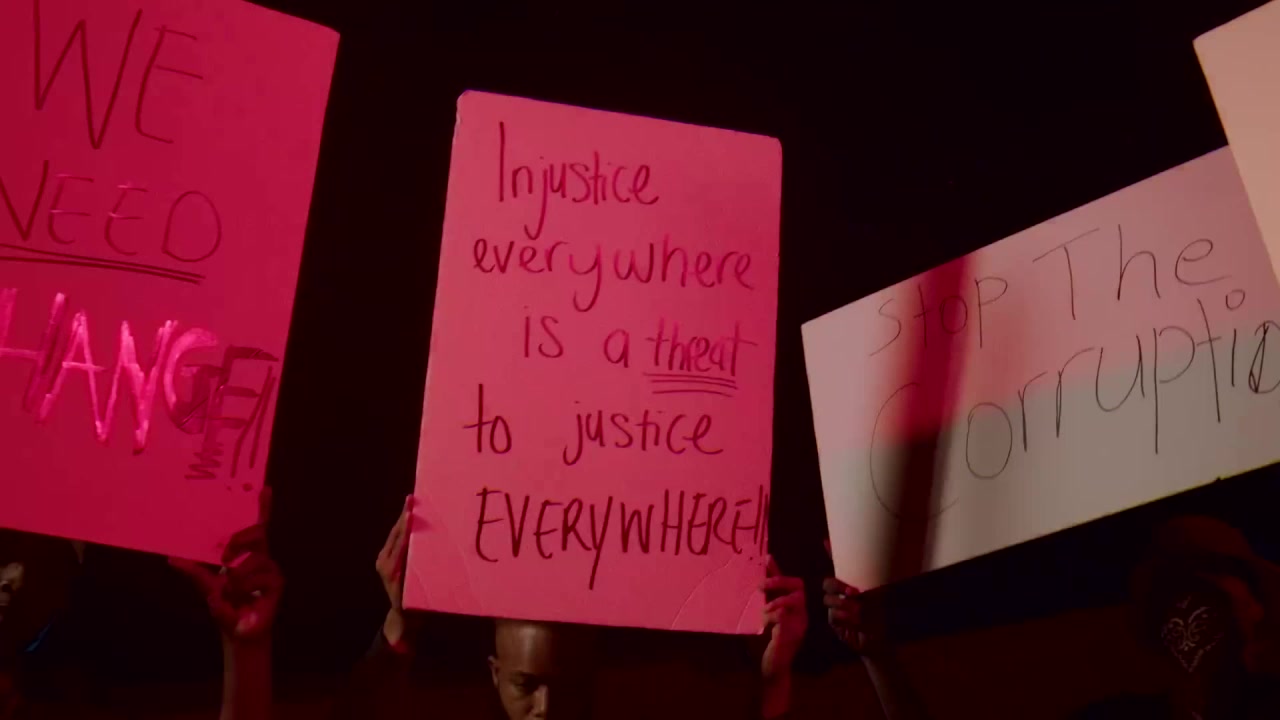 WE
NEED
HANGE!!
Injustice
everywhere
is a threat
to justice
EVERYWHERE!!
Stop The
Corruptio